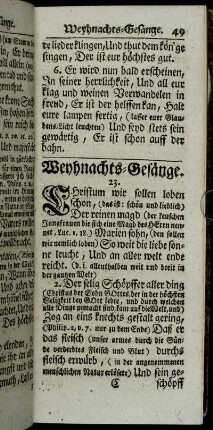 Weyhnachts-Gesänge. 49
re lieder klingen, Und thut dem kön'ge
singen, Der ist eur höchstes gut.
6. Er wird nun bald erscheinen,
In seiner herrlichkeit, Und all eur
klag und weinen Verwandelen in
freud, Er ist der helffen kan, Halt
eure lampen fertig, (lasset eure Glau
bens-Licht leuchten) Und seyd stets sein
gewärtig, Er ist schon auff der
bahn.
Weyhnachts-Gesänge.
23.
Christum wir sollen loben
schon, (das ist: schön und lieblich)
Der reinen magd (der keuschen
Jungfrauen die sich eine Magd des HErrn nen-
net. Luc. 1. 38.) Marien sohn, (den sollen
wir nemlich loben) So weit die liebe son-
ne leucht, Und an aller welt ende
reicht. (d. i. allenthalben weit und breit in
der gantzen Welt)
2. Der selig Schöpffer aller ding
(Christus der Sohn GOttes der in der höchsten
Seligkeit bey GOtt lebte, und durch welchen
alle Dinge gemacht sind, kam auf die Welt, und)
Zog an eins knechts gestalt gering,
(Philip. 2, v. 7. nur zu dem Ende) Daß er
das fleisch (unser armes durch die Sün-
de verderbtes Fleisch und Blut) durchs
fleisch erwürb, (in der angenommenen
menschlichen Natur erlösete) Und sein ge-
C schöpff